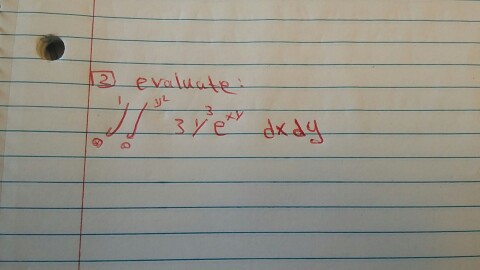 3 evaluate:
∫₀¹ ∫₀^{y²} 3y³e^{xy} dxdy